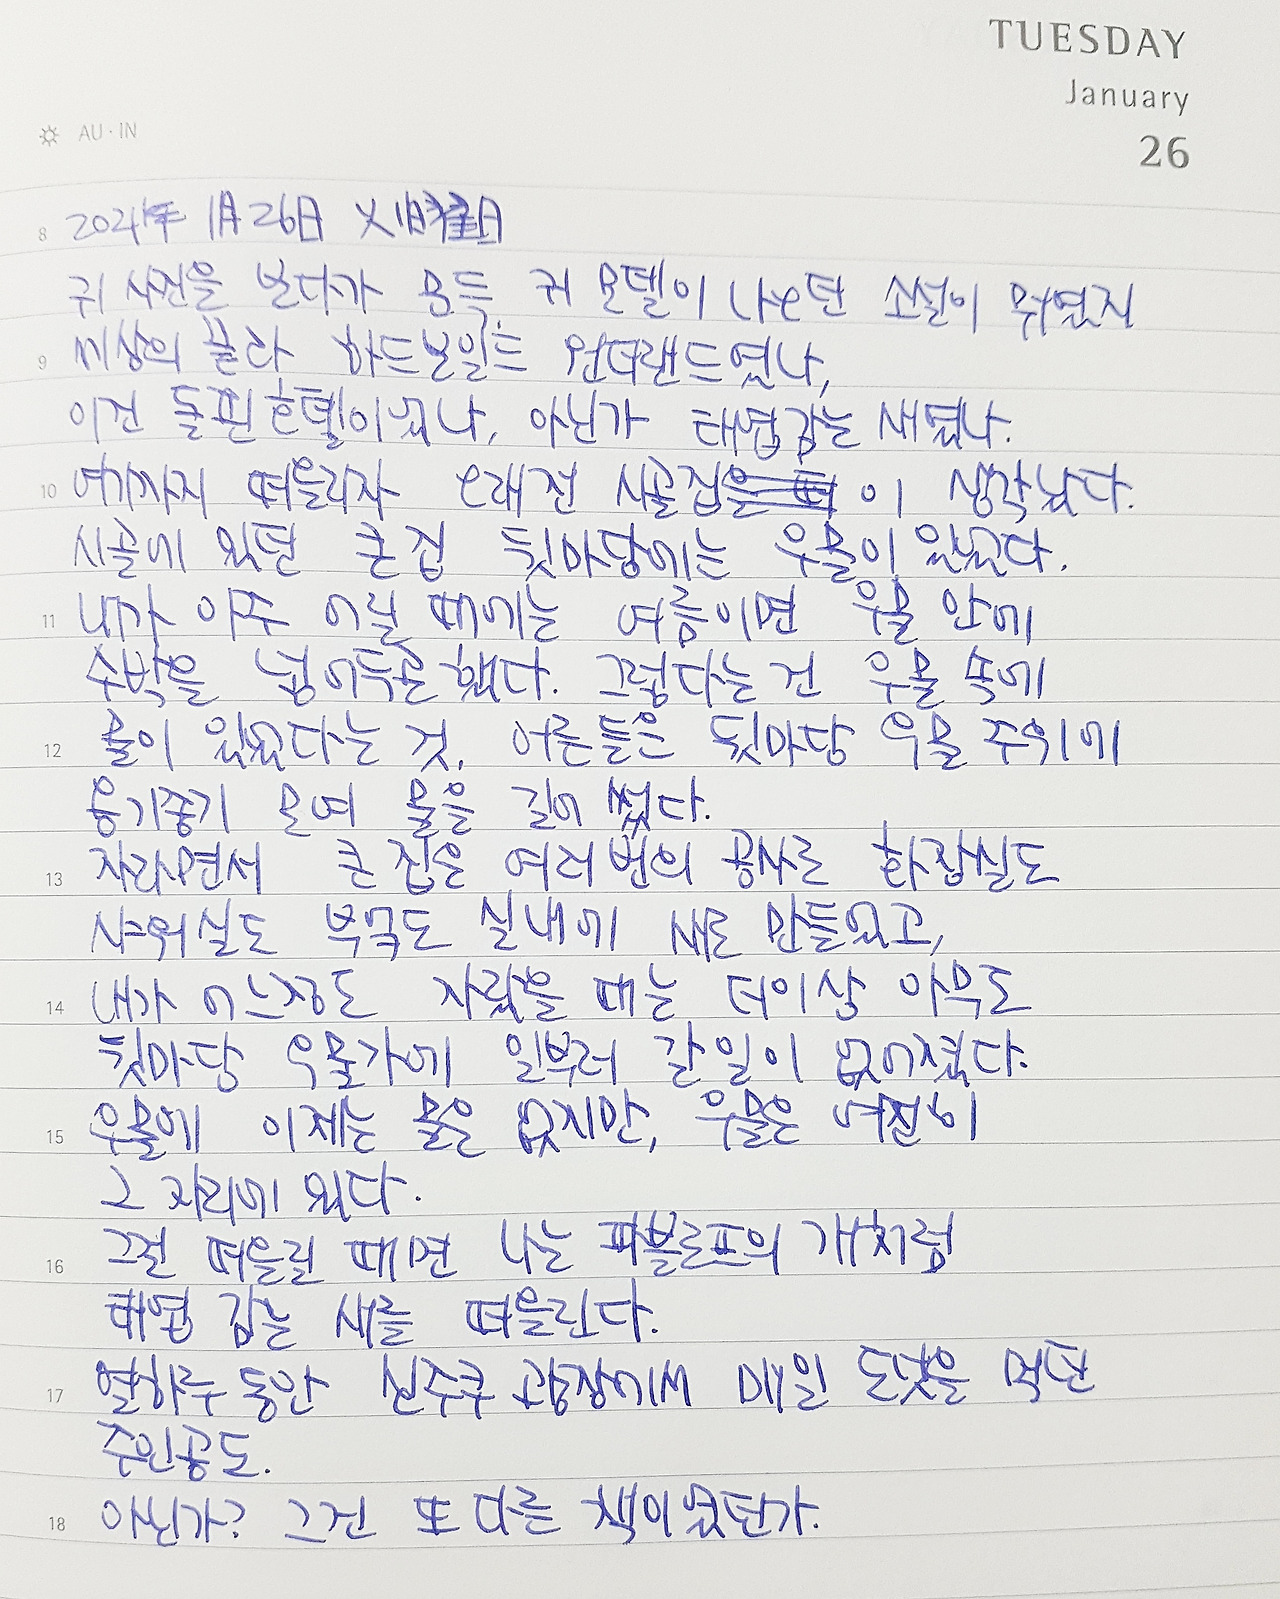 TUESDAY
January
26
AU · IN
8 2021年 1月 26日 火曜日
귀 사진을 보다가 문득, 귀 모델이 나오던 소설이 뭐였지
9 세상의 끝과 하드보일드 원더랜드였나,
이건 돌핀호텔이었나, 아닌가 태엽감는 새였나.
10 여기까지 떠올리자 오래전 시골집이 생각났다.
시골에 있던 큰집 뒷마당에는 우물이 있었다.
11 내가 아주 어릴 때에는 여름이면 우물 안에
수박을 넣어두곤 했다. 그렇다는 건 우물 속에
12 물이 있었다는 것. 어른들은 뒷마당 우물 주위에
옹기종기 모여 물을 길어 썼다.
13 자라면서 큰집은 여러번의 공사로 화장실도
샤워실도 부엌도 실내에 새로 만들었고,
14 내가 어느정도 자랐을 때는 더이상 아무도
뒷마당 우물가에 일부러 갈 일이 없어졌다.
15 우물에 이제는 물은 없지만, 우물은 여전히
그 자리에 있다.
16 그걸 떠올릴 때면 나는 파블로프의 개처럼
태엽 감는 새를 떠올린다.
17 열하루 동안 신주쿠 광장에서 매일 도넛을 먹던
주인공도.
18 아닌가? 그건 또 다른 책이었던가.